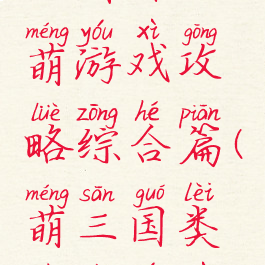 méng yóu xì gōng
萌游戏攻
lüè zōng hé piān
略综合篇(
méng sān guó lèi
萌三国类